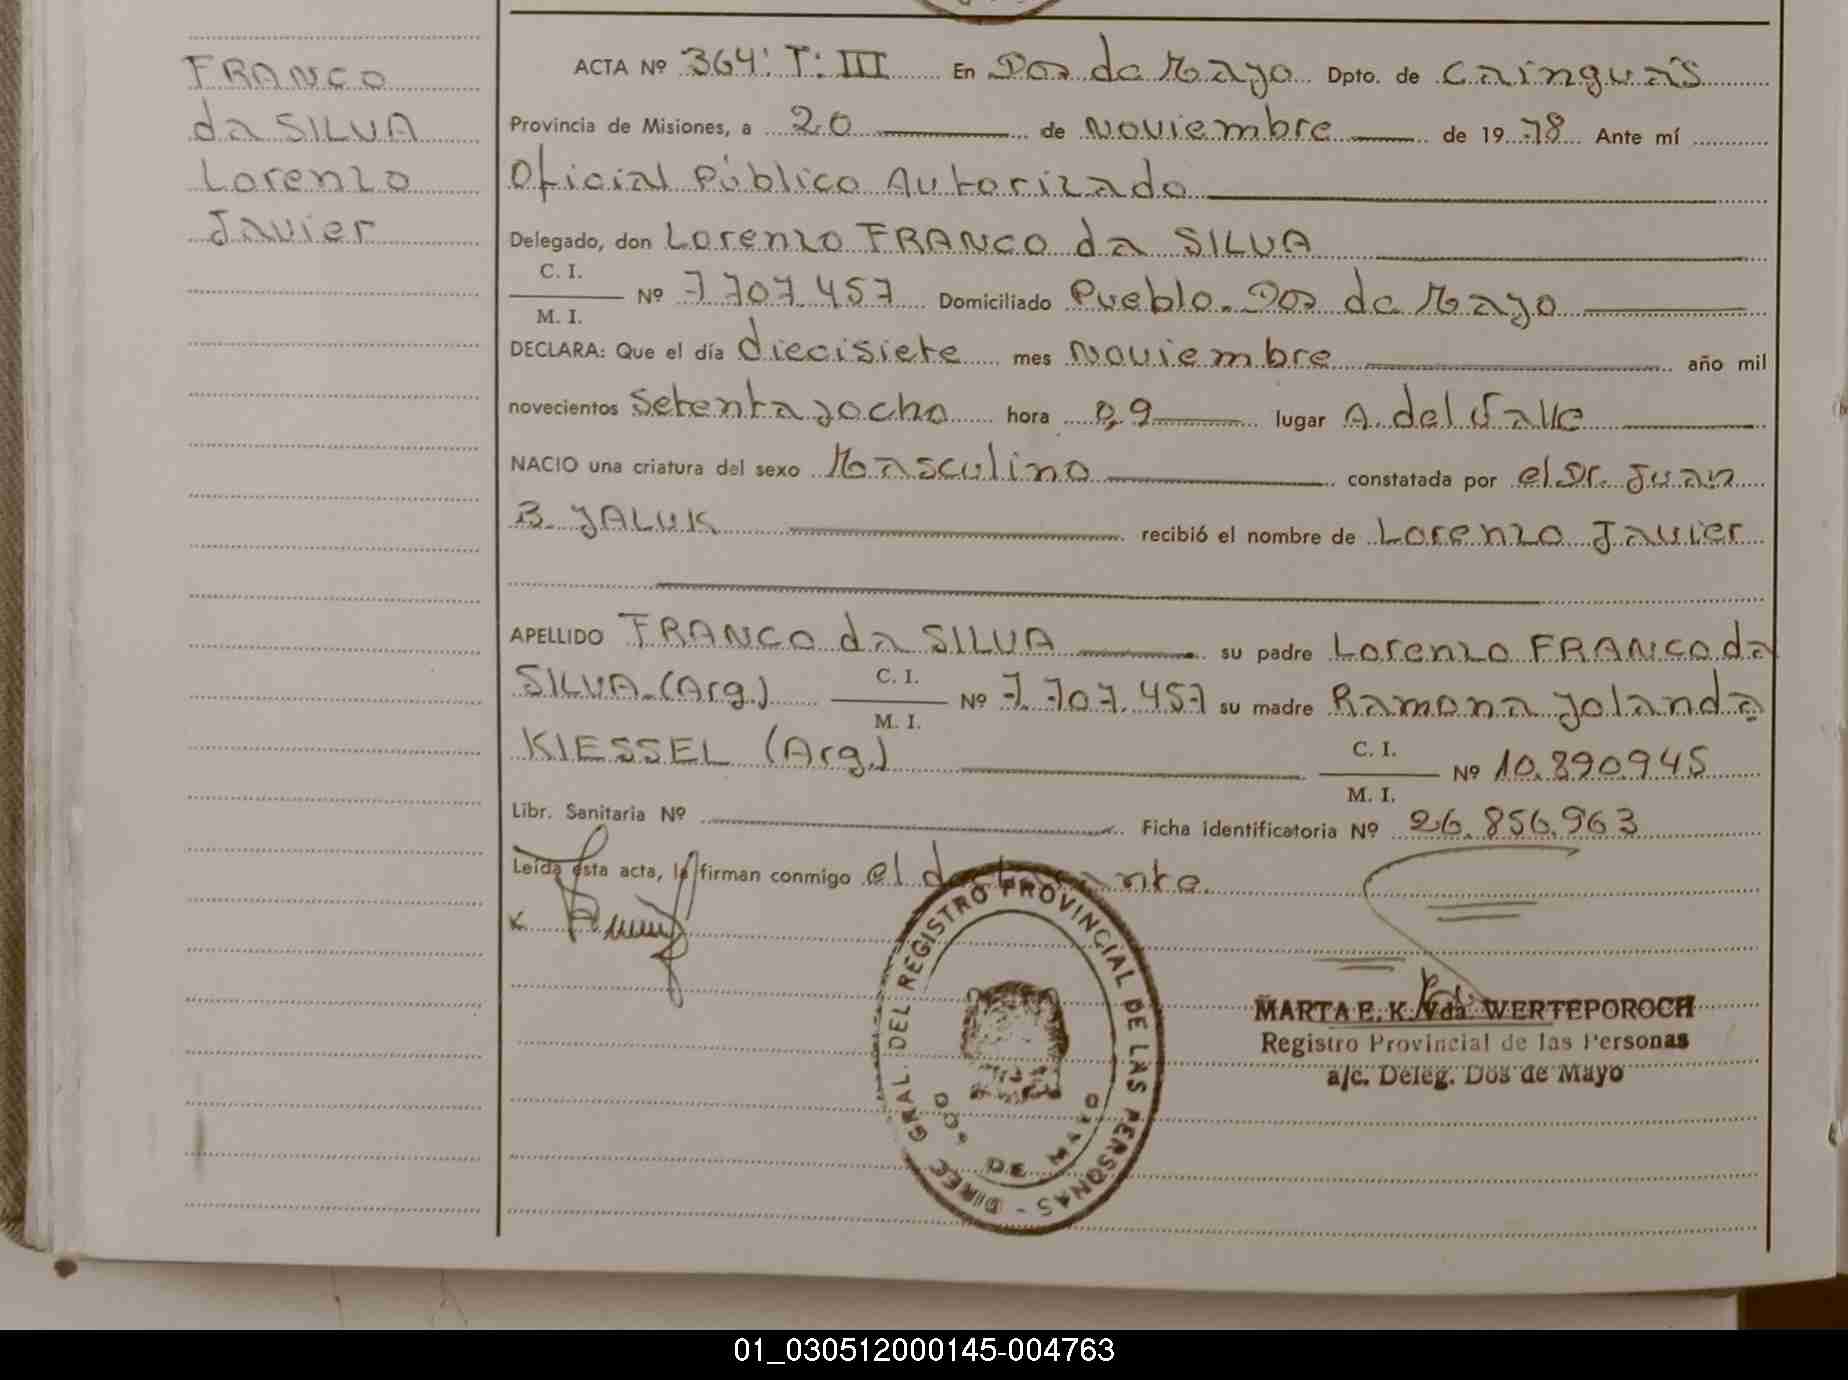 FRANCO
da SILVA
Lorenzo
Javier
ACTA Nº 364' T: III En Dos de Mayo Dpto. de Cainguas
Provincia de Misiones, a 20 de Noviembre de 1978 Ante mí
Oficial Público Autorizado
Delegado, don Lorenzo FRANCO da SILVA
C. I.
M. I.
Nº 7.707.457 Domiciliado Pueblo. Dos de Mayo
DECLARA: Que el día diecisiete mes Noviembre año mil
novecientos setentayocho hora 0,9 lugar A. del Valle
NACIO una criatura del sexo Masculino constatada por el Dr. Juan
B. YALUK recibió el nombre de Lorenzo Javier
APELLIDO FRANCO da SILVA su padre Lorenzo FRANCO da
SILVA.(Arg.) C. I. M. I. Nº 7.707.457 su madre Ramona Yolanda
KIESSEL (Arg.) C. I. M. I. Nº 10.890945
Libr. Sanitaria Nº Ficha identificatoria Nº 26.856.963
Leída esta acta, la firman conmigo el
DIREC. GRAL. DEL REGISTRO PROVINCIAL DE LAS PERSONAS -
DOS DE MAYO
MARTA E. K. Vda. WERTEPOROCH
Registro Provincial de las Personas
a/c. Deleg. Dos de Mayo
01_030512000145-004763